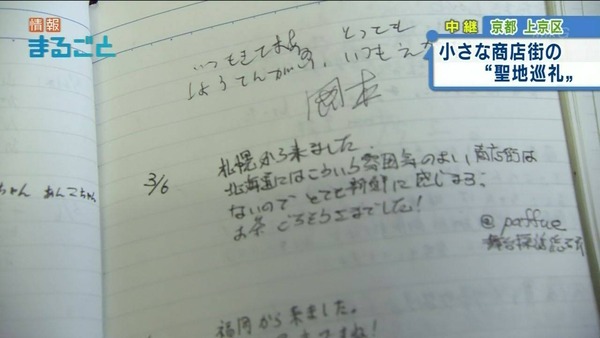 情報
まるごと
中継 京都 上京区
小さな商店街の
“聖地巡礼”
とっても
しょうてんがい
3/6
札幌から来ました。
北海道にはこういう雰囲気のよい商店街は
ないので とても新鮮に感じまる。
お茶 ごちそうさまでした!
@paffue
ちゃん あんこちゃん
福岡から来ました。